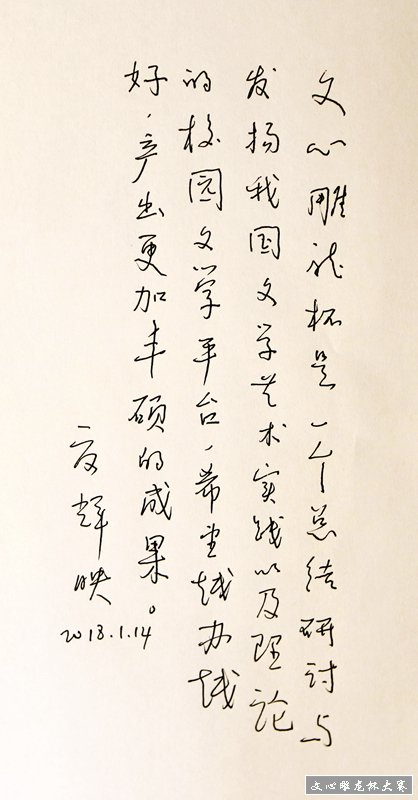 文心雕龙杯是一个总结研讨与
发扬我国文学艺术实践以及理论
的校园文学平台,希望越办越
好,产出更加丰硕的成果。
夏辉映
2018.1.14
文心雕龙杯大赛